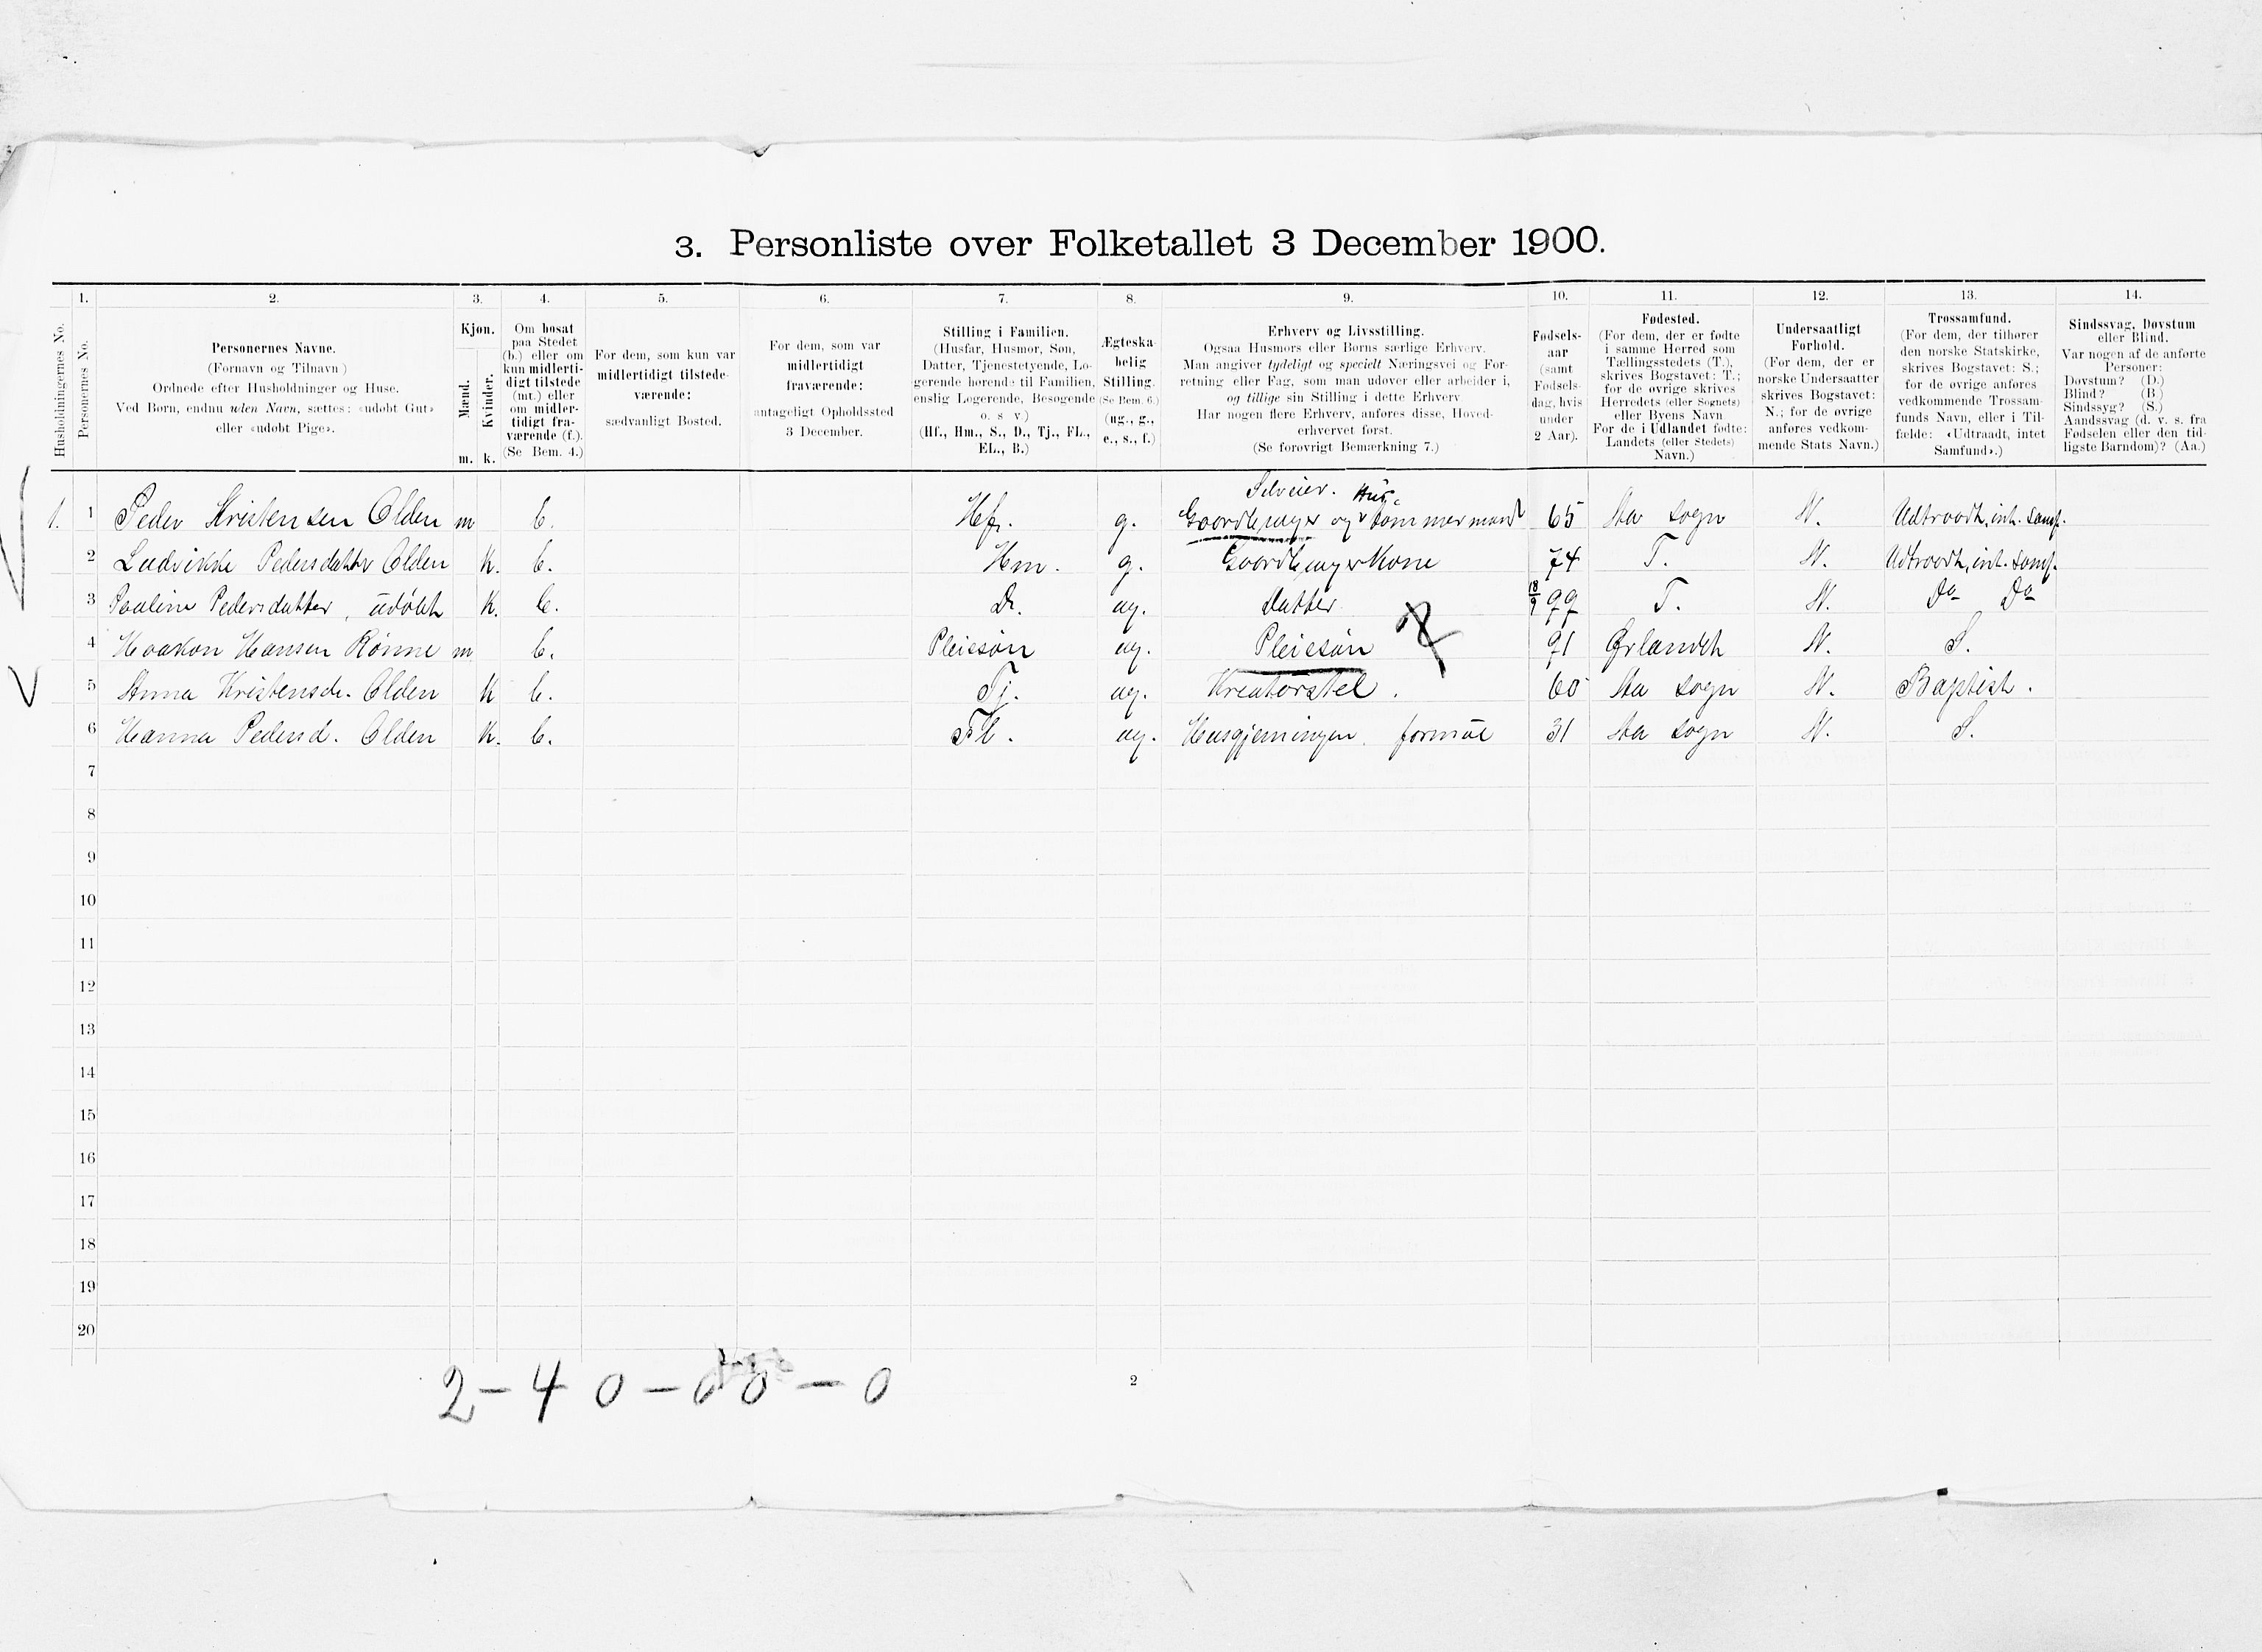 3. Personliste over Folketallet 3 December 1900.
1. 2. 3. 4. 5. 6. 7. 8. 9. 10. 11. 12. 13. 14.
Husholdningernes No.
Personernes No.
Personernes Navne.
(Fornavn og Tilnavn)
Ordnede efter Husholdninger og Huse.
Ved Børn, endnu uden Navn, sættes: «udøbt Gut»
eller «udøbt Pige».
Kjøn.
Mænd.
Kvinder.
m. k.
Om bosat
paa Stedet
(b.) eller om
kun midlerti-
digt tilstede
(mt.) eller
om midler-
tidigt fra-
værende (f.).
(Se Bem. 4.)
For dem, som kun var
midlertidigt tilstede-
værende:
sædvanligt Bosted.
For dem, som var
midlertidigt
fraværende:
antageligt Opholdssted
3 December.
Stilling i Familien.
(Husfar, Husmor, Søn,
Datter, Tjenestetyende, Lo-
gerende hørende til Familien,
enslig Logerende, Besøgende
o. s v)
(Hf., Hm., S., D., Tj., FL.,
EL., B.)
Ægteska-
belig
Stilling.
(Se Bem. 6.)
(ug., g.,
e., s., f.)
Erhverv og Livsstilling.
Ogsaa Husmors eller Børns særlige Erhverv.
Man angiver tydeligt og specielt Næringsvei og For-
retning eller Fag, som man udøver eller arbeider i,
og tillige sin Stilling i dette Erhverv
Har nogen flere Erhverv, anføres disse, Hoved-
erhvervet først.
(Se forøvrigt Bemærkning 7.)
Fødsels-
aar
(samt
Fødsels-
dag, hvis
under
2 Aar).
Fødested.
(For dem, der er fødte
i samme Herred som
Tællingsstedets (T.),
skrives Bogstavet: T.;
for de øvrige skrives
Herredets (eller Sognets)
eller Byens Navn
For de i Udlandet fødte:
Landets (eller Stedets)
Navn.)
Undersaatligt
Forhold.
(For dem, der er
norske Undersaatter
skrives Bogstavet:
N.; for de øvrige
anføres vedkom-
mende Stats Navn.)
Trossamfund.
(For dem, der tilhører
den norske Statskirke,
skrives Bogstavet: S.;
for de øvrige anføres
vedkommende Trossam-
funds Navn, eller i Til-
fælde: «Udtraadt, intet
Samfund».)
Sindssvag, Døvstum
eller Blind.
Var nogen af de anførte
Personer:
Døvstum? (D.)
Blind? (B.)
Sindssyg? (S.)
Aandssvag (d. v. s. fra
Fødselen eller den tid-
ligste Barndom)? (Aa.)
Selveier. Hus-
1. 1 Peder Kristensen Olden m b. Hf. g. Gaardbruger og Tømmermand 65 Sta sogn N. Udtraadt, int. Samf.
2 Ludvikke Pedersdatter Olden k. b. Hm. g. Gaardbruger Kone 74 T. N. Udtraadt, int. Samf.
3 Pauline Pedersdatter, udøbt k. b. D. ug. Datter 18/9 99 T. N. Do Do
4 Haakon Hansen Rønne m b. Pleiesøn ug. Pleiesøn 91 Ørlandet N. S.
5 Anna Kristensd. Olden k b. Tj. ug. Kreaturstel. 60 Sta sogn N. Baptist.
6 Hanna Pedersd. Olden k. b. FL. ug. Husgjerningen. formue 31 Sta sogn N. S.
7
8
9
10
11
12
13
14
15
16
17
18
19
20
2 - 4 0 - 0 0 - 0
2